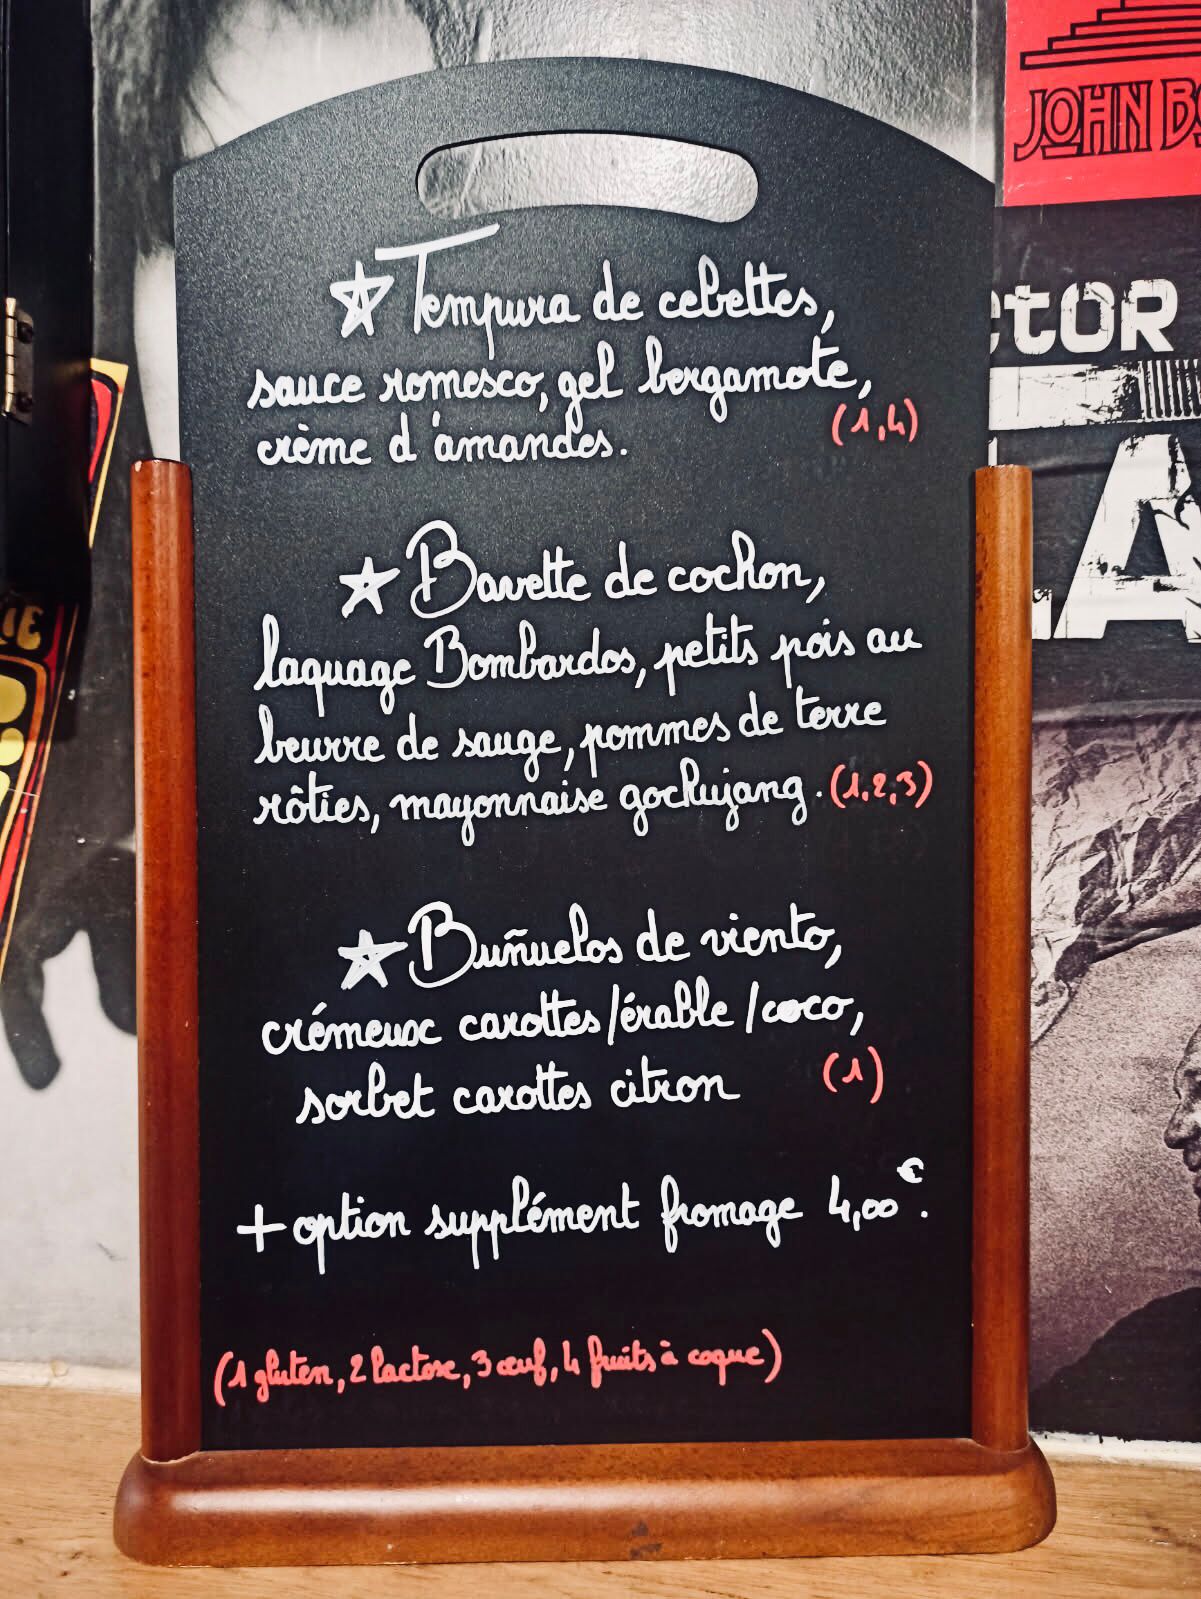 Tempura de cebettes,
sauce romesco, gel bergamote,
crème d'amandes. (1,4)
Bavette de cochon,
laquage Bombardos, petits pois au
beurre de sauge, pommes de terre
rôties, mayonnaise gochujang. (1,2,3)
Buñuelos de viento,
crémeux carottes/érable/coco,
sorbet carottes citron (1)
+ option supplément fromage 4,00€.
(1 gluten, 2 lactose, 3 œuf, 4 fruits à coque)
JOHN